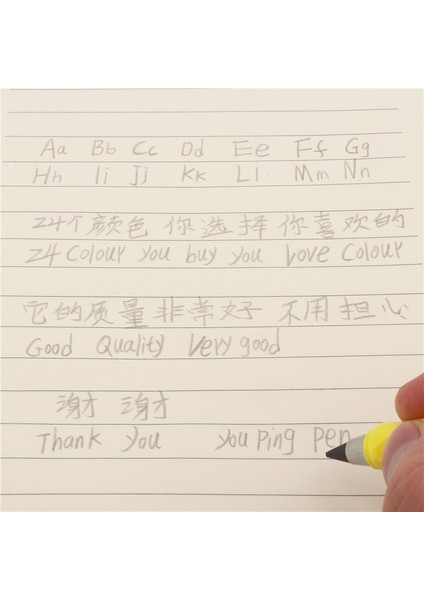 Aa Bb Cc Dd Ee Ff Gg
Hh Ii Jj Kk Ll Mm Nn
24个颜色 你选择你喜欢的
24 Colour you buy you Love Colour
它的质量非常好 不用担心
Good Quality Very good
谢谢
Thank you you Ping Pen